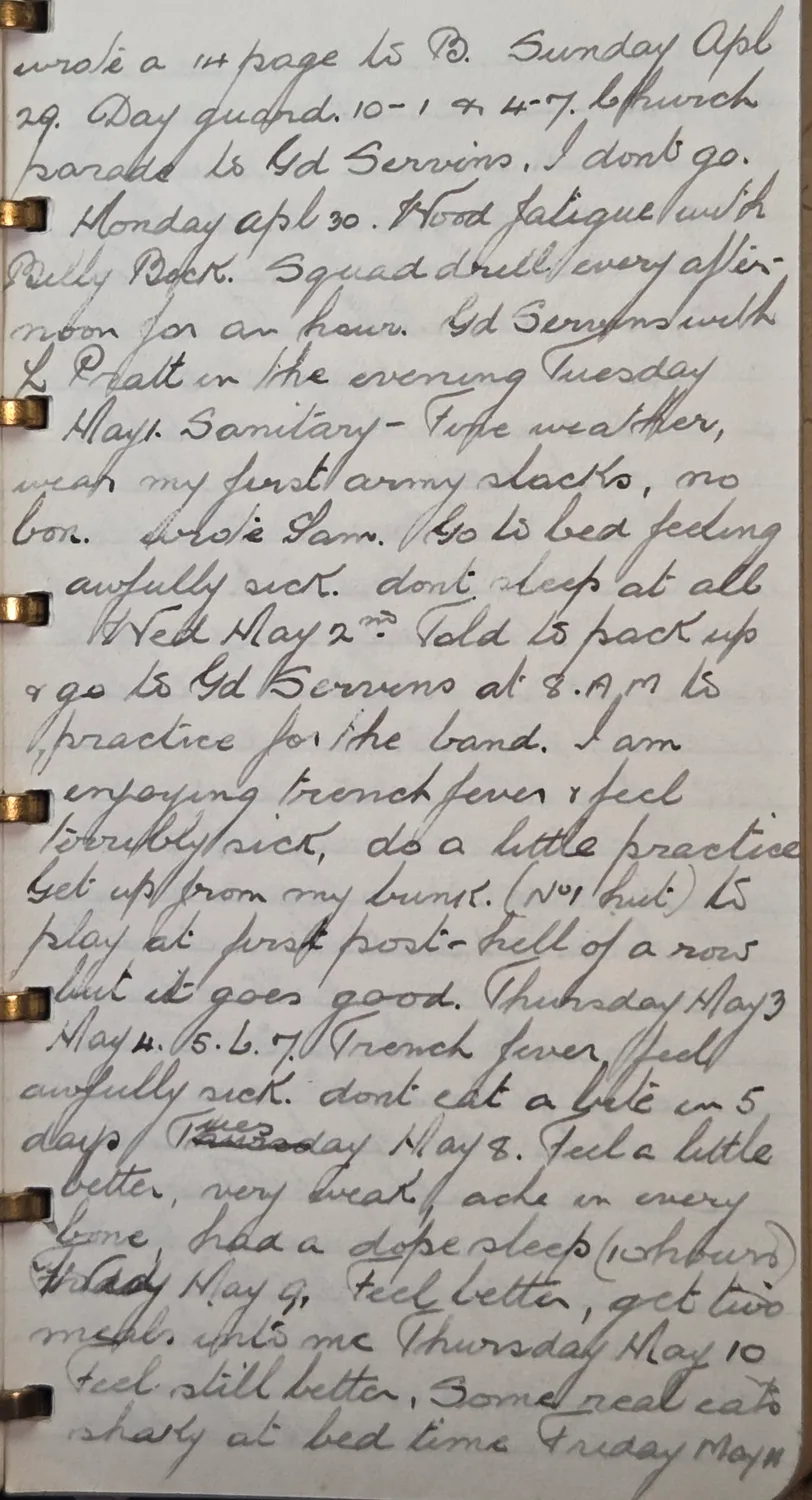 wrote a 14 page to B. Sunday Apl
29. Day guard. 10-1 & 4-7. Church
parade to Gd Servins. I dont go.
Monday apl 30. Wood fatigue with
Billy Beck. Squad drill every after-
noon for an hour. Gd Servins with
L Pratt in the evening Tuesday
May 1. Sanitary - Fine weather,
wear my first army slacks, no
bon. wrote Sam. Go to bed feeling
awfully sick. dont sleep at all
Wed May 2nd. Told to pack up
& go to Gd Servins at 8.A M to
practice for the band. I am
enjoying trench fever & feel
terribly sick, do a little practice
Get up from my bunk. (No 1 hut) to
play at first post - hell of a row
but it goes good. Thursday May 3
May 4. 5. 6. 7. Trench fever, feel
awfully sick. dont eat a bite in 5
days Tuesday May 8. Feel a little
better, very weak, ache in every
bone, had a dope sleep (10 hours)
May 9, Feel better, get two
meals into me Thursday May 10
Feel still better, Some real eats
shaky at bed time Friday May 11